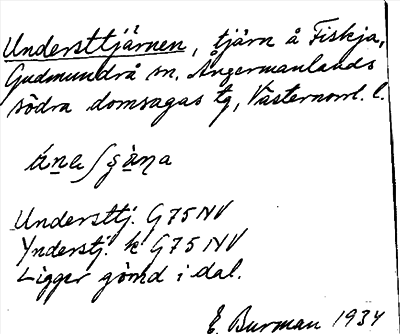 Understtjärnen, tjärn å Fiskja,
Gudmundrå sn. Ångermanlands
södra domsagas tg, Västernorrl. l.
Understtj. G75NV
Ynderstj. k G75NV
Ligger gömd i dal.
E. Burman 1934